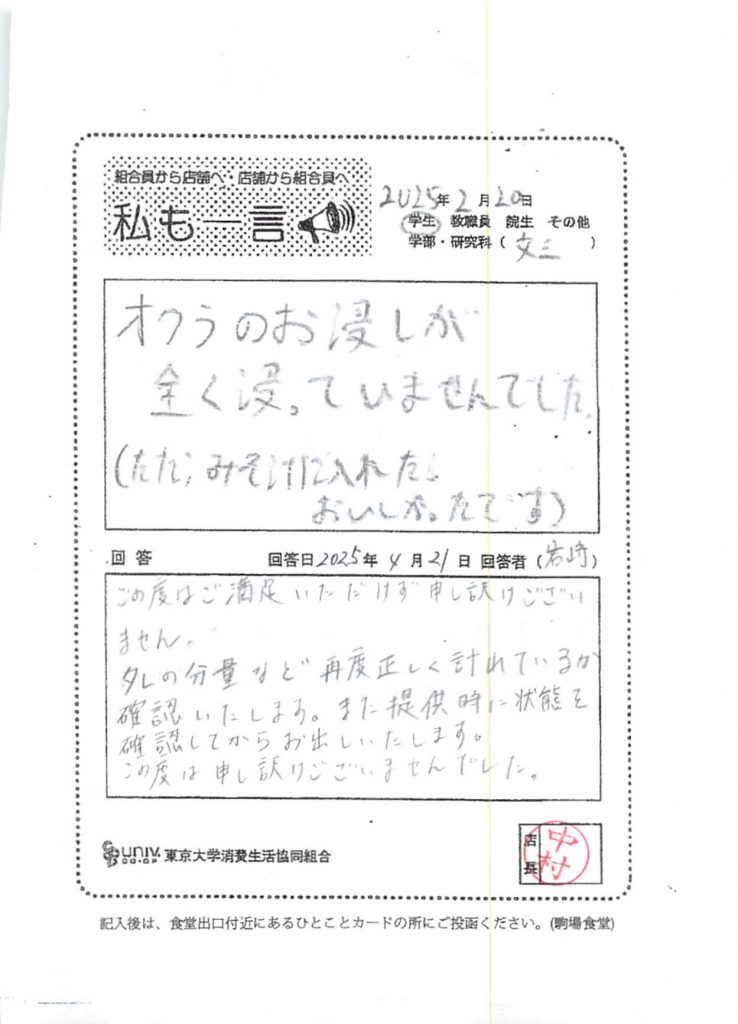 組合員から店舗へ・店舗から組合員へ
私も一言
2025年2月20日
学生 教職員 院生 その他
学部・研究科（文三）
オクラのお浸しが
全く浸っていませんでした。
(ただ、みそ汁に入れたら
おいしかったです)
回答 回答日2025年4月21日 回答者（岩崎）
この度はご満足いただけず申し訳けござい
ません。
タレの分量など再度正しく計れているか
確認いたします。また提供時に状態を
確認してからお出しいたします。
この度は申し訳けございませんでした。
UNIV. CO-OP 東京大学消費生活協同組合
店長 中村
記入後は、食堂出口付近にあるひとことカードの所にご投函ください。(駒場食堂)